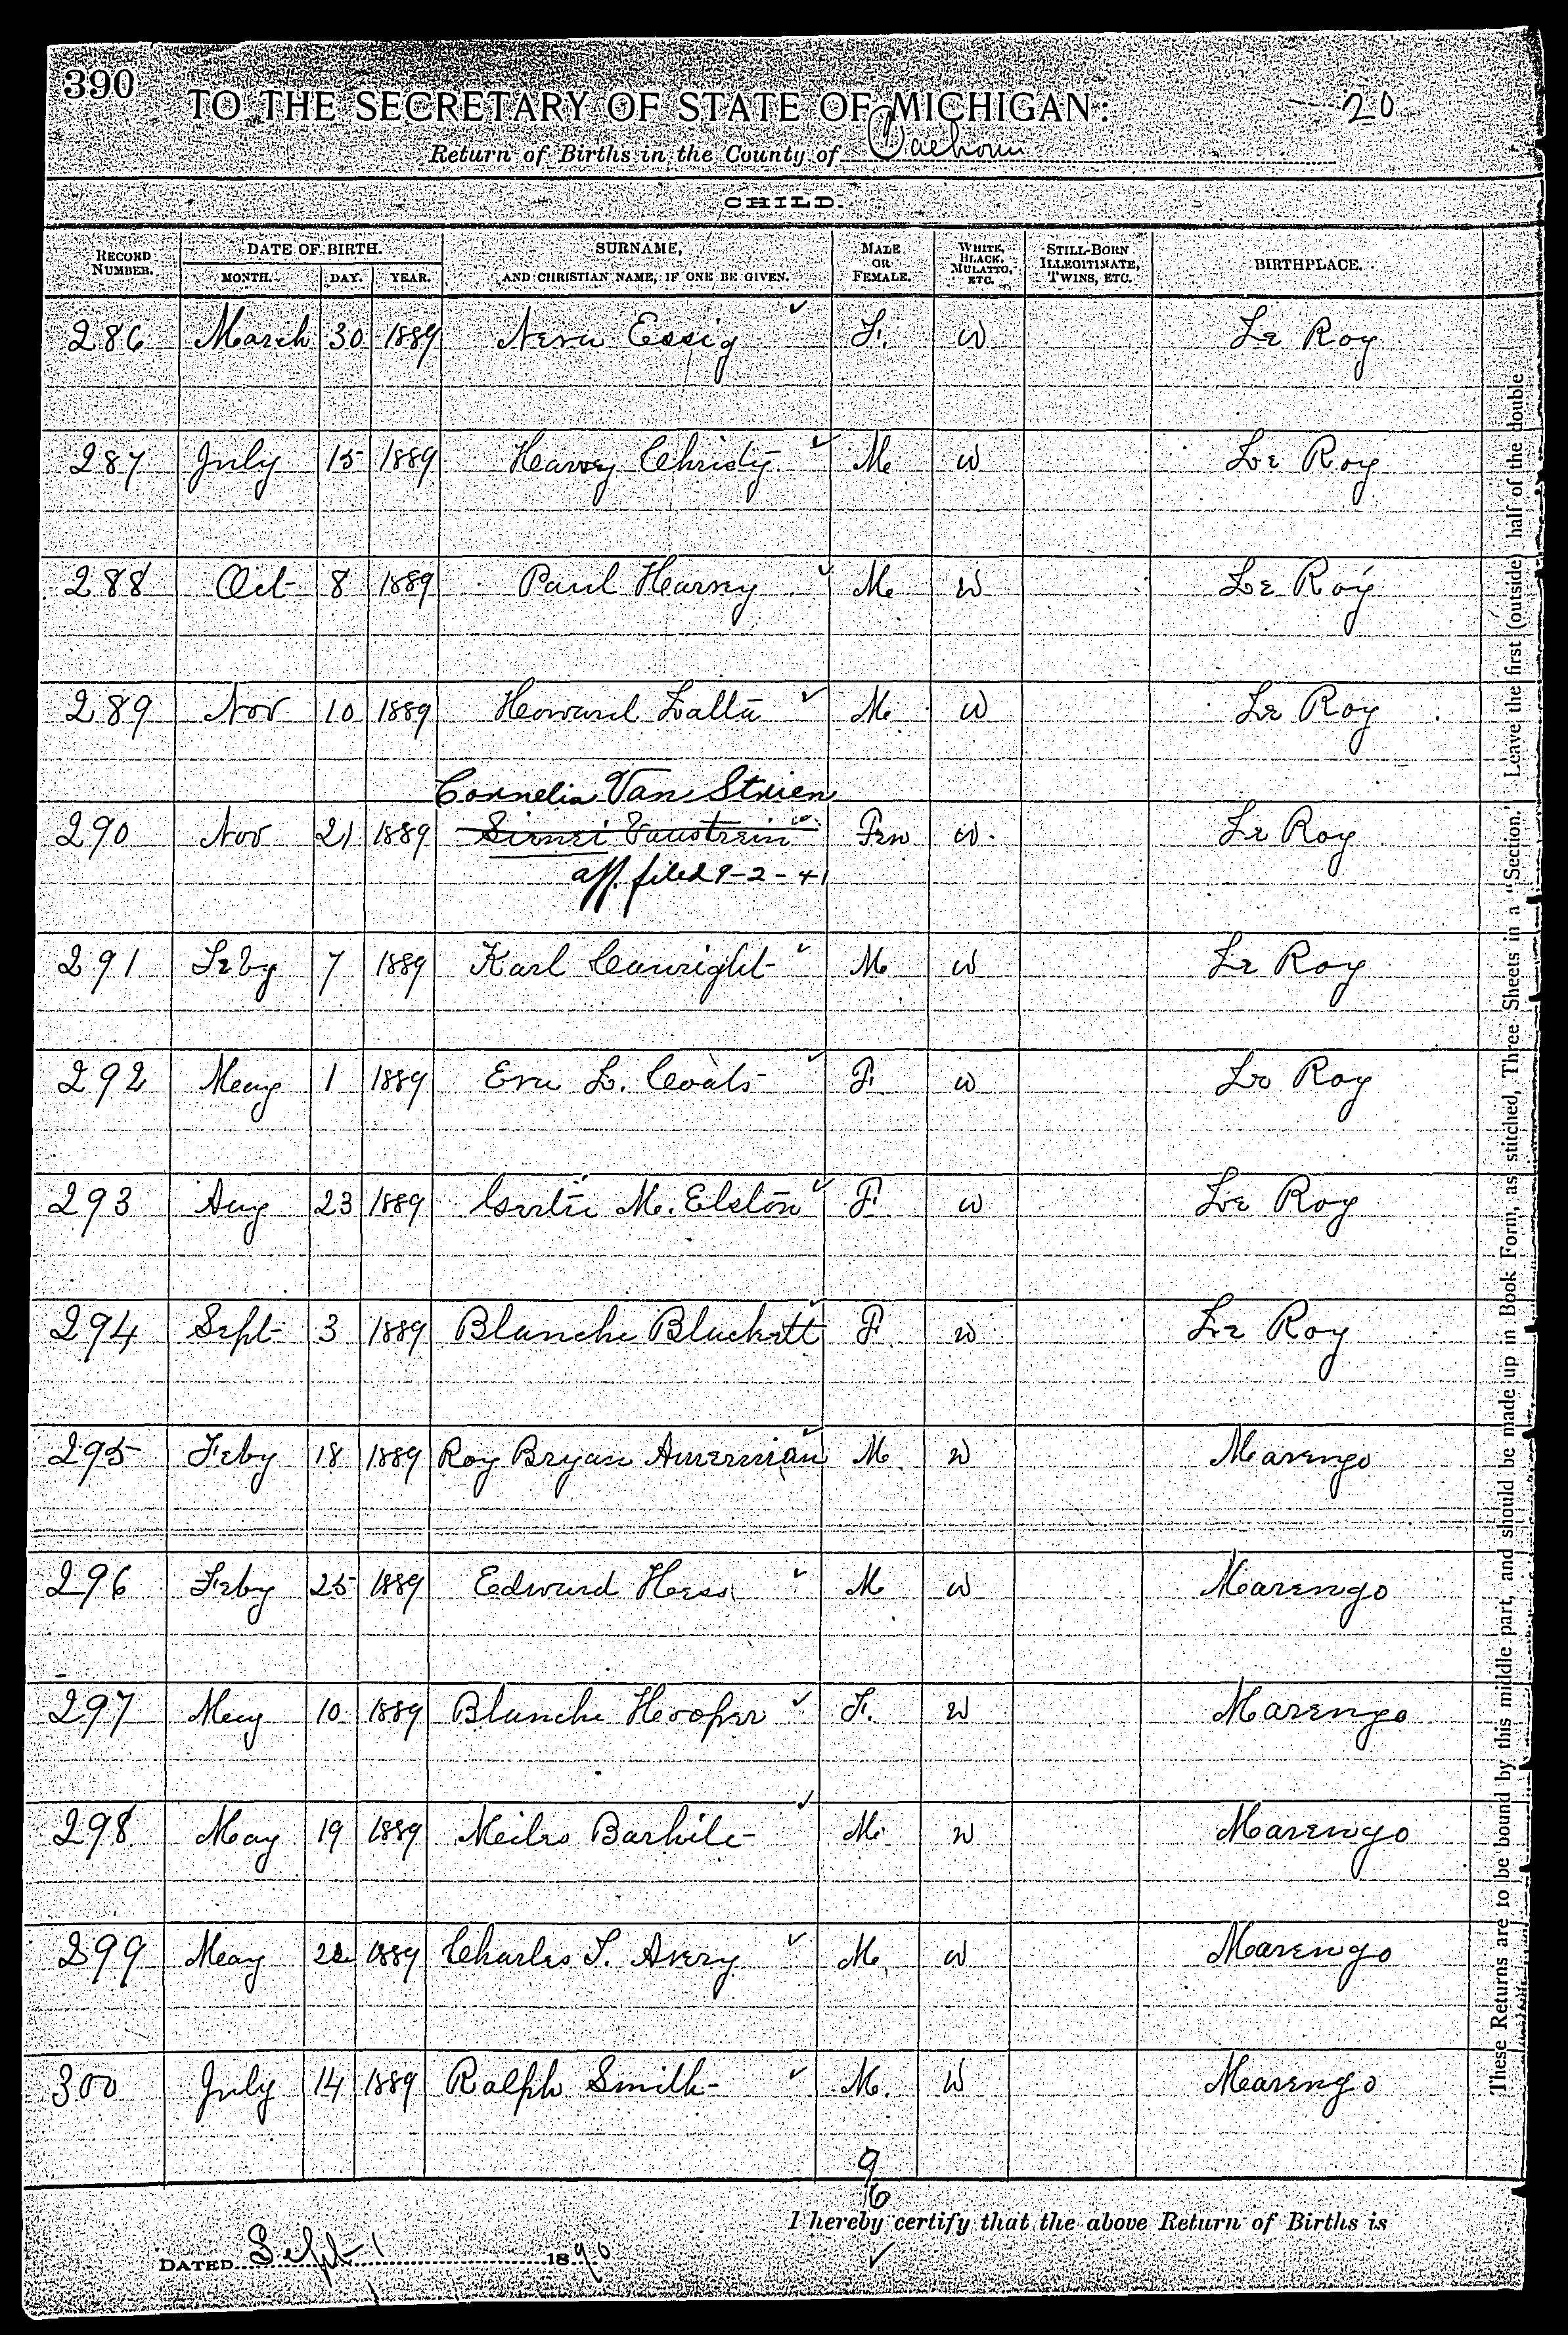 390
TO THE SECRETARY OF STATE OF MICHIGAN:
20
Return of Births in the County of Calhoun
CHILD.
RECORD NUMBER. DATE OF BIRTH. MONTH. DAY. YEAR. SURNAME, AND CHRISTIAN NAME, IF ONE BE GIVEN. MALE OR FEMALE. WHITE, BLACK, MULATTO, ETC. STILL-BORN ILLEGITIMATE, TWINS, ETC. BIRTHPLACE.
286 March 30 1889 Neva Essig F. W Le Roy
287 July 15 1889 Harvey Christy M W Le Roy
288 Oct 8 1889 Paul Harvey M W Le Roy
289 Nov 10 1889 Howard Latta M W Le Roy
Cornelia Van Strien
290 Nov 21 1889 Vanstrein Fem W. Le Roy
aff. filed 9-2-41
291 Feby 7 1889 Karl M W Le Roy
292 May 1 1889 Eva L. Coats F. W Le Roy
293 Aug 23 1889 Gertie M. Elston F. W Le Roy
294 Sept 3 1889 Blanche Blackett F. W Le Roy
295 Feby 18 1889 Roy Bryan Amerman M. W Marengo
296 Feby 25 1889 Edward Hess M W Marengo
297 May 10 1889 Blanche Hooper F. W Marengo
298 May 19 1889 M. W Marengo
299 May 1889 Charles T. Avery M. W Marengo
300 July 14 1889 Ralph Smith M. W Marengo
9
6
I hereby certify that the above Return of Births is
DATED Sept 1 1890
These Returns are to be bound by this middle part, and should be made up in Book Form, as stitched, Three Sheets in a "Section." Leave the first (outside) half of the double